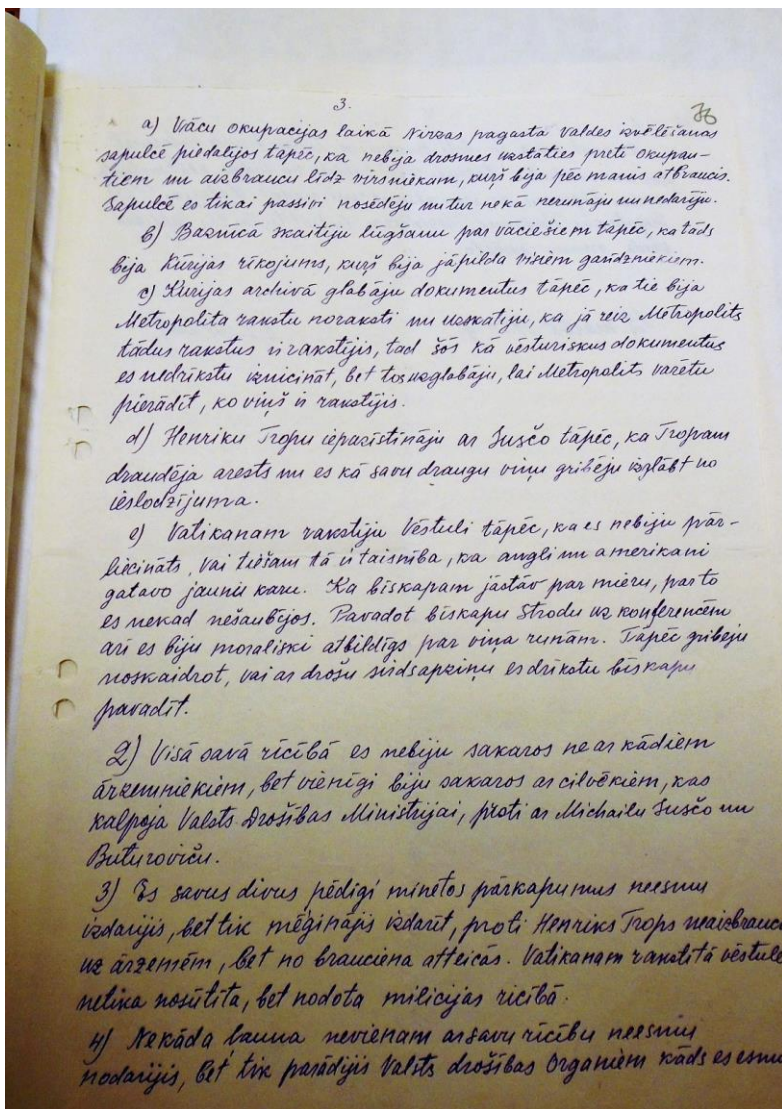 3.
76
a) Vācu okupacijas laikā Nirzas pagasta valdes izvēlēšanas
sapulcē piedalijos tāpēc, ka nebija drosmes uzstāties preti okupan-
tiem un aizbraucu līdz virsniekam, kurš bija pēc manis atbraucis.
Sapulcē es tikai passivi nosēdēju un tur nekā nerunāju un nedariju.
b) Baznīcā skaitiju lūgšanu par vāciešiem tāpēc, ka tāds
bija Kūrijas rīkojums, kurš bija jāpilda visiem garīdzniekiem.
c) Kūrijas archivā glabāju dokumentus tāpēc, ka tie bija
Metropolita rakstu noraksti un uzskatiju, ka jā reiz Metropolits
tādus rakstus ir rakstijis, tad šos kā vēsturiskus dokumentus
es nedrīkstu iznicināt, bet tos uzglabāju, lai Metropolits varētu
pierādīt, ko viņš ir rakstijis.
d) Henriku Tropu iepazīstināju ar Susčo tāpēc, ka Tropam
draudēja arests un es kā savu draugu viņu gribēju izglābt no
ieslodzījuma.
e) Vatikanam rakstiju vēstuli tāpēc, ka es nebiju pār-
liecināts, vai tiešam tā ir taisnība, ka angli un amerikani
gatavo jaunu karu. Ka bīskapam jāstāv par mieru, par to
es nekad nešaubijos. Pavadot bīskapu Strodu uz konferencēm
arī es biju moraliski atbildīgs par viņa runām. Tāpēc gribēju
noskaidrot, vai ar drošu sirdsapziņu es drīkstu bīskapu
pavadīt.
2) Visā savā rīcībā es nebiju sakaros ne ar kādiem
ārzemniekiem, bet vienīgi biju sakaros ar cilvēkiem, kas
kalpoja Valsts Drošības Ministrijai, proti ar Michailu Susčo un
Buturoviču.
3) Es savus divus pēdīgi minētos pārkapumus neesmu
izdarijis, bet tik mēginājis izdarīt, proti Henriks Trops neaizbrauca
uz ārzemēm, bet no brauciena atteicās. Vatikanam rakstītā vēstule
netika nosūtīta, bet nodota milicijas rīcībā.
4) Nekāda launa nevienam ar savu rīcību neesmu
nodarijis, bet tik parādijis Valsts drošības Organiem kāds es esmu